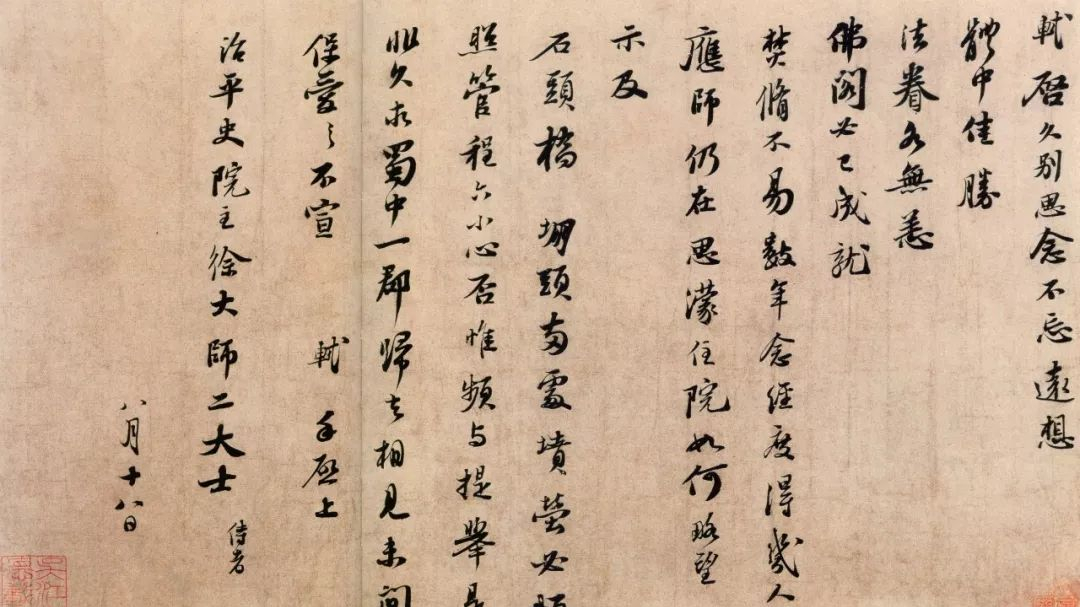 軾啓久別思念不忘遠想
體中佳勝
法眷各無恙
佛閣必已成就
焚脩不易數年念經度得幾人
應師仍在思濛住院如何略望
示及
石頭橋 堋頭兩處墳塋必
照管程六小心否惟頻与提舉是
非久求蜀中一郡歸去相見未間
保愛之不宣 軾 手啓上
治平史院主徐大師二大士 侍者
八月十八日